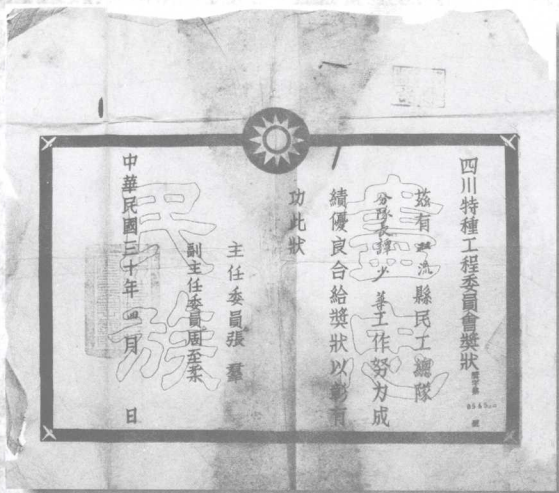 四川特種工程委員會獎狀
茲有双流縣民工總隊
分隊長譚少華工作努力成
績優良合給獎狀以彰有
功此狀
主任委員張羣
副主任委員周至柔
中華民國三十年四月 日
盡忠
民族